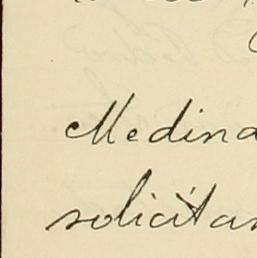 Medina
solicitan